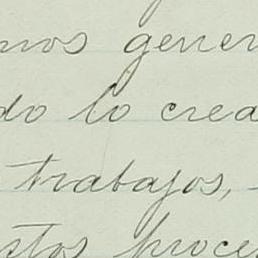 mos gener
do lo crea
trabajos,
stos proce